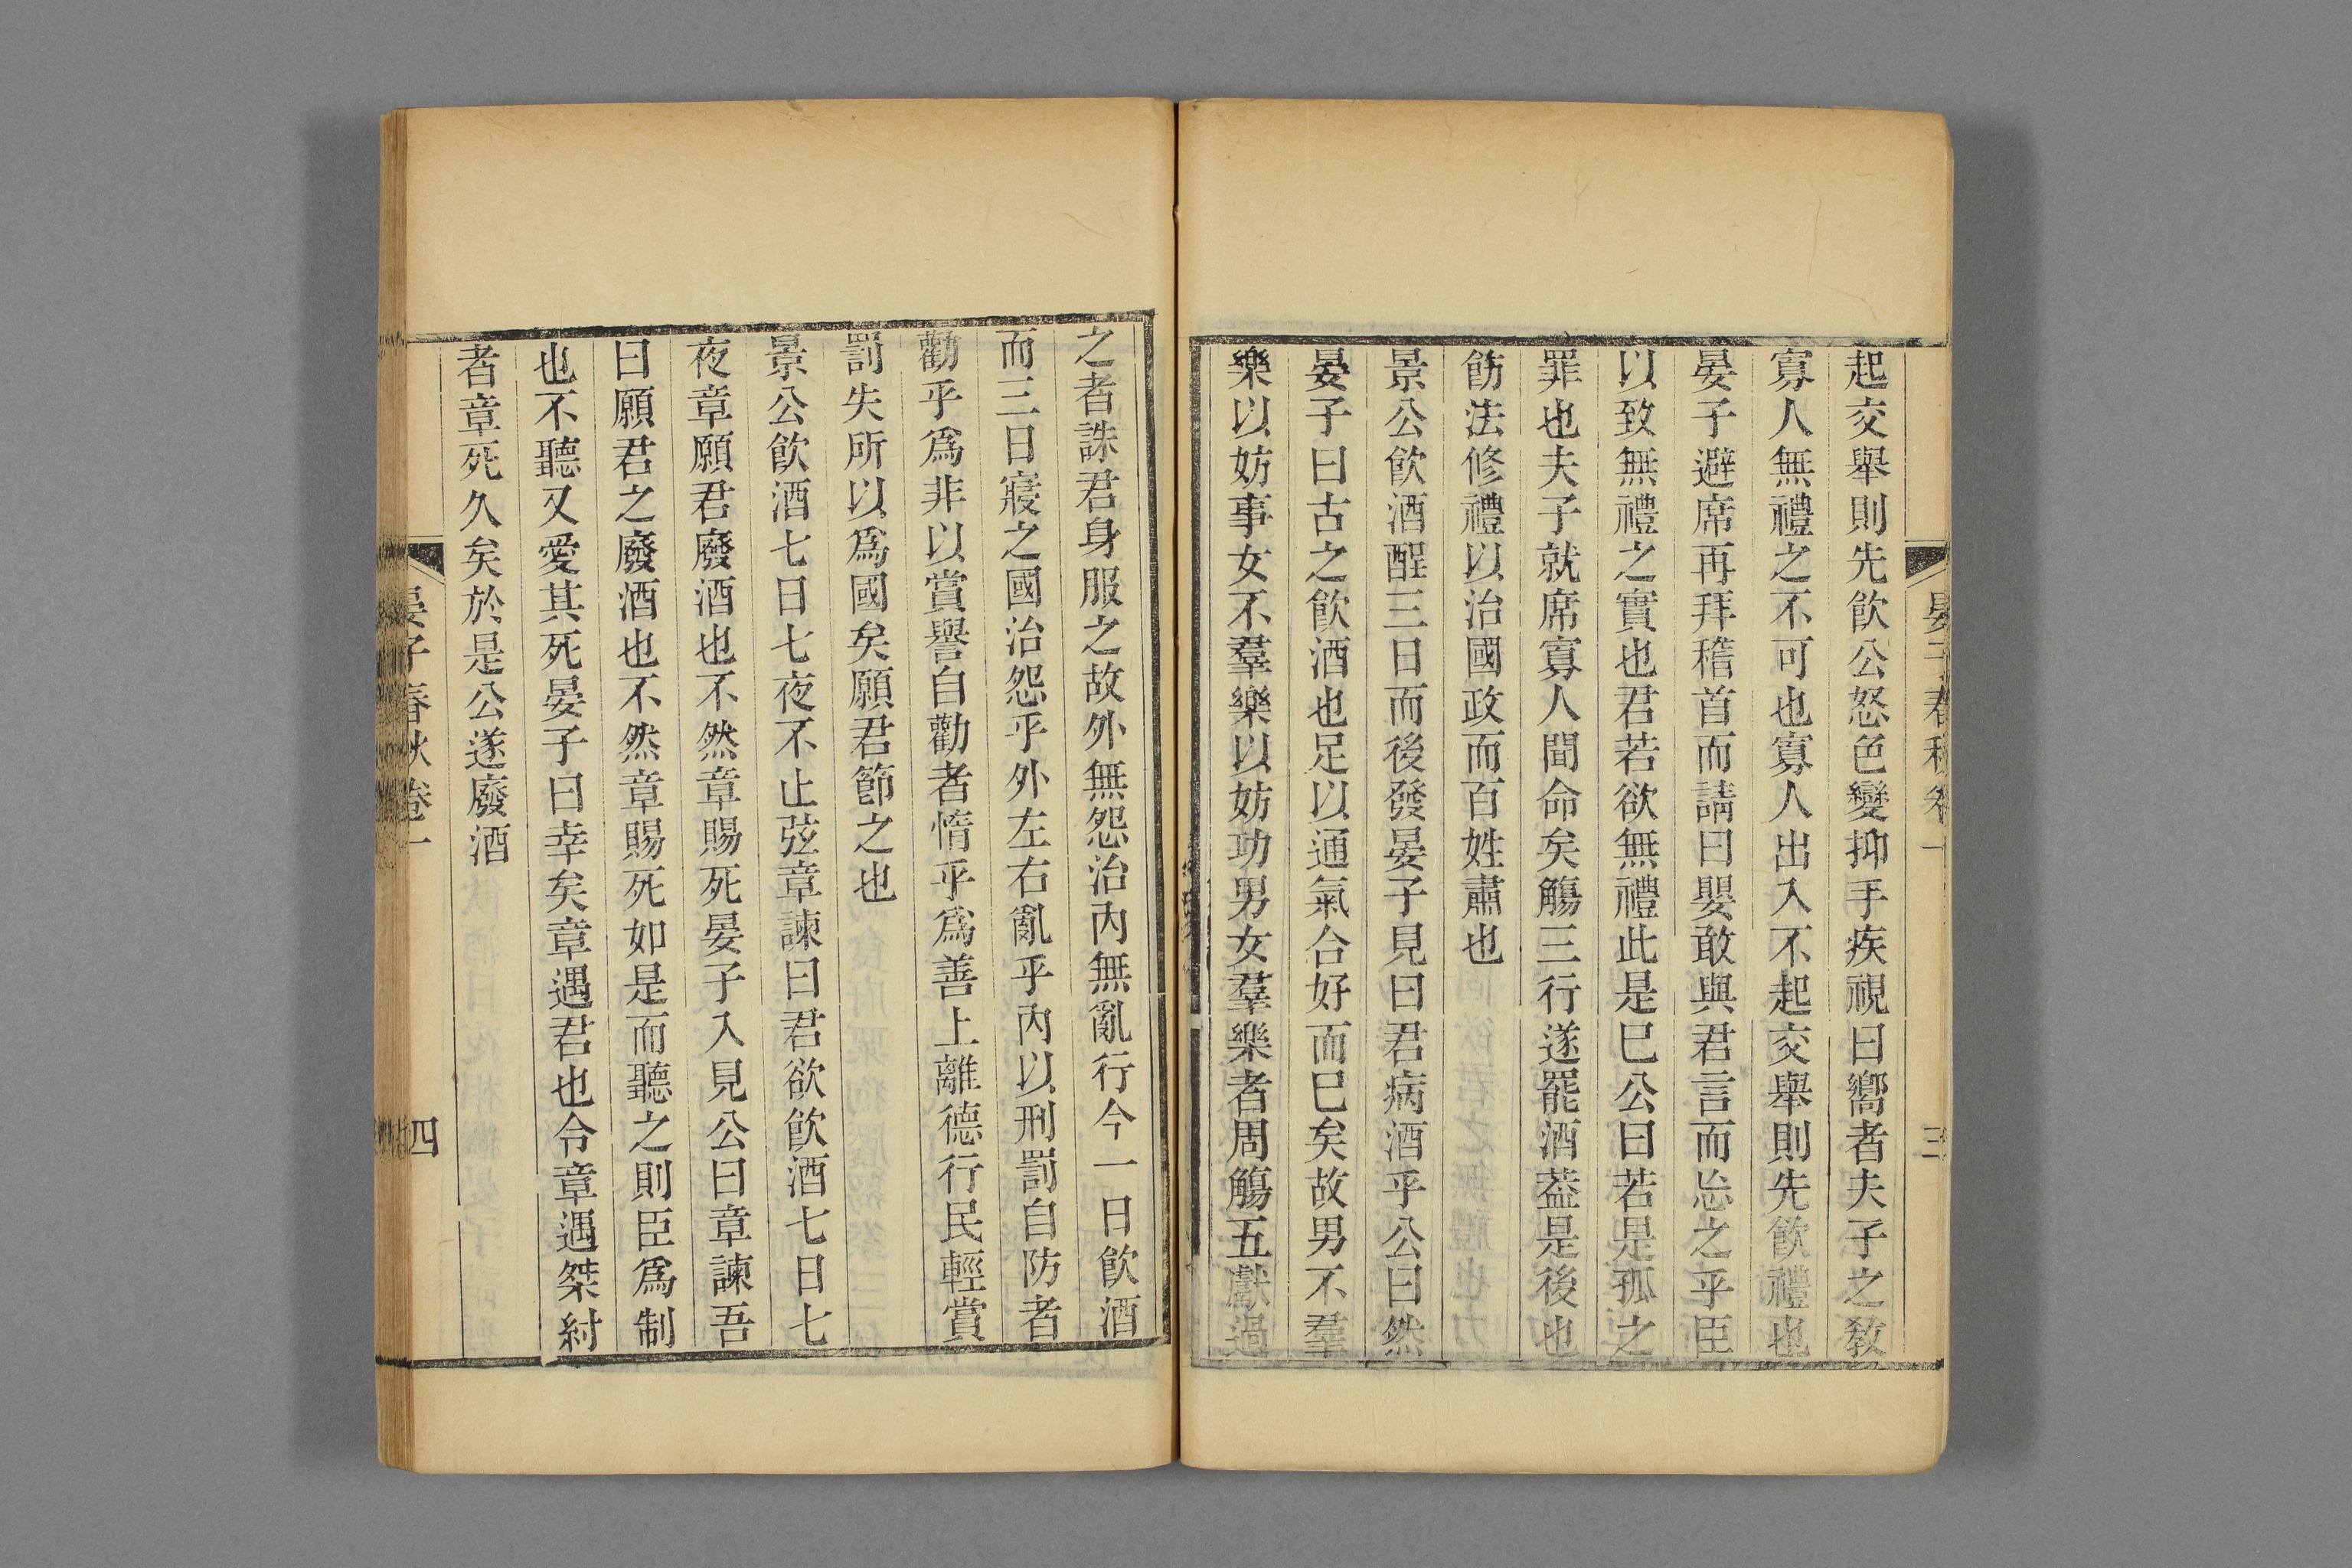 晏子春秋卷一
三
起交舉則先飮公怒色變抑手疾視曰嚮者夫子之敎
寡人無禮之不可也寡人出入不起交舉則先飮禮也
晏子避席再拜稽首而請曰嬰敢與君言而忘之乎臣
以致無禮之實也君若欲無禮此是巳公曰若是孤之
罪也夫子就席寡人聞命矣觴三行遂罷酒葢是後也
飭法修禮以治國政而百姓肅也
景公飮酒酲三日而後發晏子見曰君病酒乎公曰然
晏子曰古之飮酒也足以通氣合好而巳矣故男不羣
樂以妨事女不羣樂以妨功男女羣樂者周觴五獻過
之者誅君身服之故外無怨治內無亂行今一日飮酒
而三日寢之國治怨乎外左右亂乎內以刑罰自防者
勸乎爲非以賞譽自勸者惰乎爲善上離德行民輕賞
罰失所以爲國矣願君節之也
景公飮酒七日七夜不止弦章諫曰君欲飮酒七日七
夜章願君廢酒也不然章賜死晏子入見公曰章諫吾
曰願君之廢酒也不然章賜死如是而聽之則臣爲制
也不聽又愛其死晏子曰幸矣章遇君也令章遇桀紂
者章死久矣於是公遂廢酒
晏子春秋卷一
四